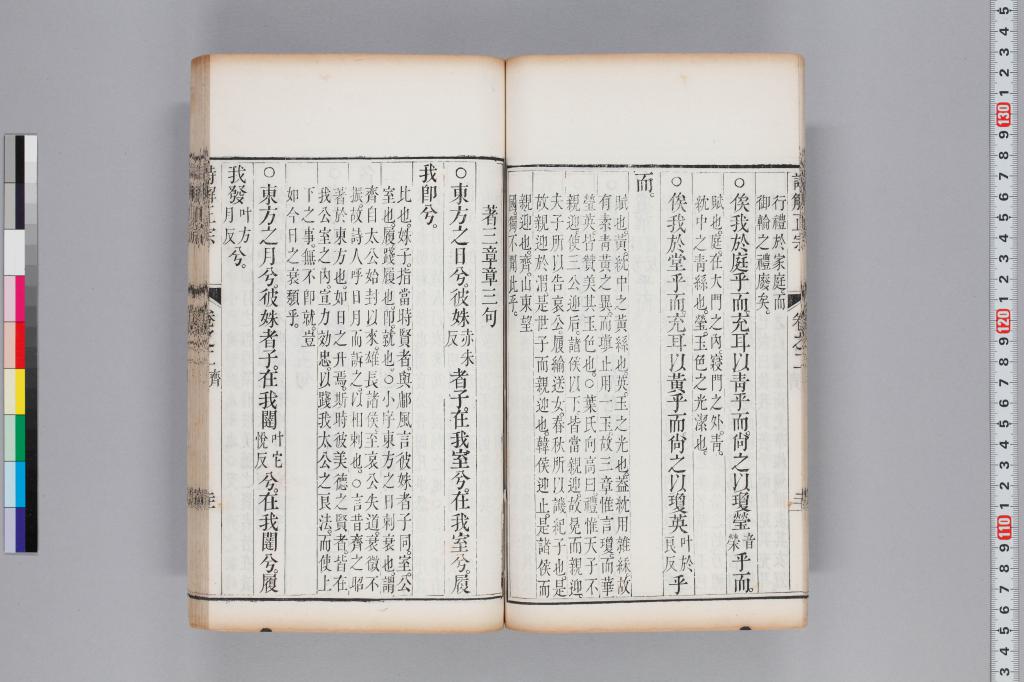 行禮於家庭而
御輪之禮廢矣。
○俟我於庭乎而充耳以青乎而尙之以瓊瑩音榮乎而。
賦也。庭在大門之内寢門之外。青
紞中之青絲也。瑩玉色之光潔也。
○俟我於堂乎而充耳以黃乎而尙之以瓊英叶於良反乎
而。
賦也。黃紞中之黃絲也。英玉之光也。蓋紞用雜綵故
有素青黃之異。而瑱止用一玉故三章惟言瓊。而華
瑩英皆贊美其玉色也。○葉氏向高曰禮惟天子不
親迎使三公迎后。諸侯以下皆當親迎故冕而親迎。
夫子所以告哀公履緰送女。春秋所以譏紀子也。是
故親迎於渭是世子而親迎也。韓侯迎止。是諸侯而
親迎也。齊山東望
國獨不聞此乎。
著三章章三句
○東方之日兮。彼姝赤朱反者子。在我室兮。在我室兮。履
我卽兮。
比也。姝子。指當時賢者。與鄘風言彼姝者子同。室。公
室也。履踐履也卽。就也。○小序東方之日刺衰也。謂
齊自太公始封以來雄長諸侯至哀公失道衰微不
振。故詩人呼日月而訴之。以相刺也。○言昔齊之昭
著於東方也。如日之升焉。斯時彼美德之賢者皆在
我公室之内。宣力効忠。以踐我太公之良法。而使上
下之事。無不卽就。豈
如今日之衰頹乎。
○東方之月兮。彼姝者子。在我闥叶宅悅反兮。在我闥兮。履
我發叶方月反兮。
詩解正宗
卷之二
齊